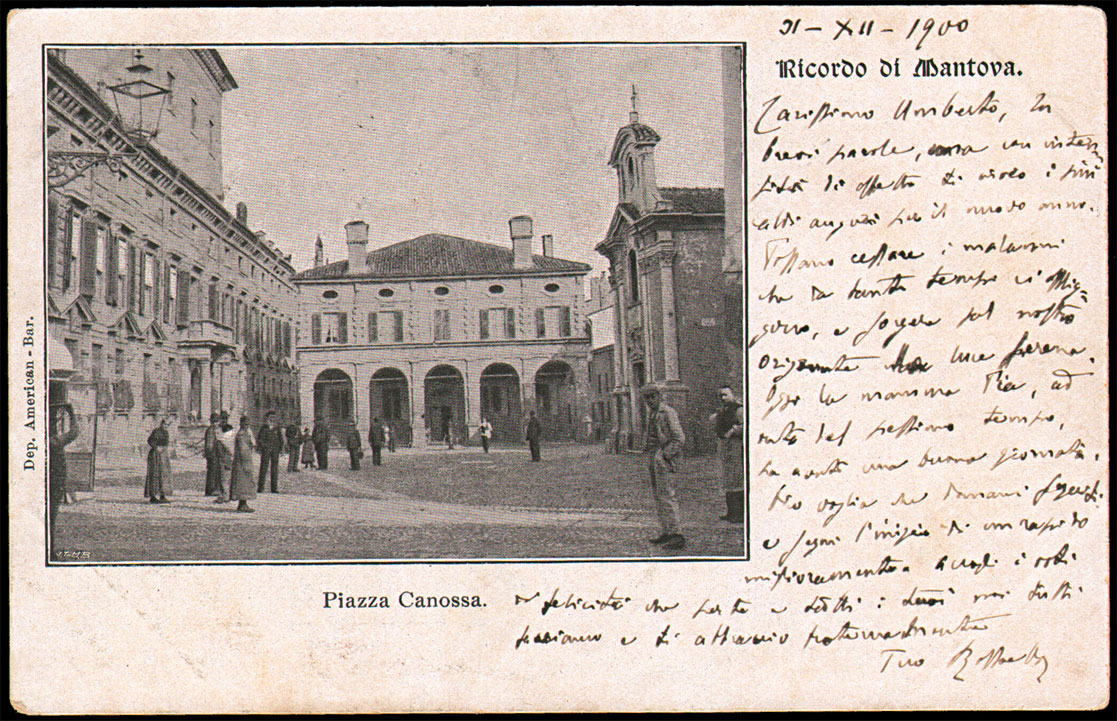 XII - 1900
Ricordo di Mantova.
Carissimo Umberto, In
brevi parole, ma con
di affetto ti invio i più
auguri per il nuovo anno.
Possano cessare i malanni
che da tanto tempo ci
e sorgere sul nostro
luce serena.
Oggi la mamma Pia, ad
onta del pessimo tempo,
ha avuto una buona giornata.
Dio voglia che domani
e segni l'inizio di un rapido
miglioramento. Accogli i voti
di felicità che per te e tutti i tuoi noi tutti
facciamo e ti abbraccio fraternamente
Tuo
Piazza Canossa.
Dep. American - Bar.